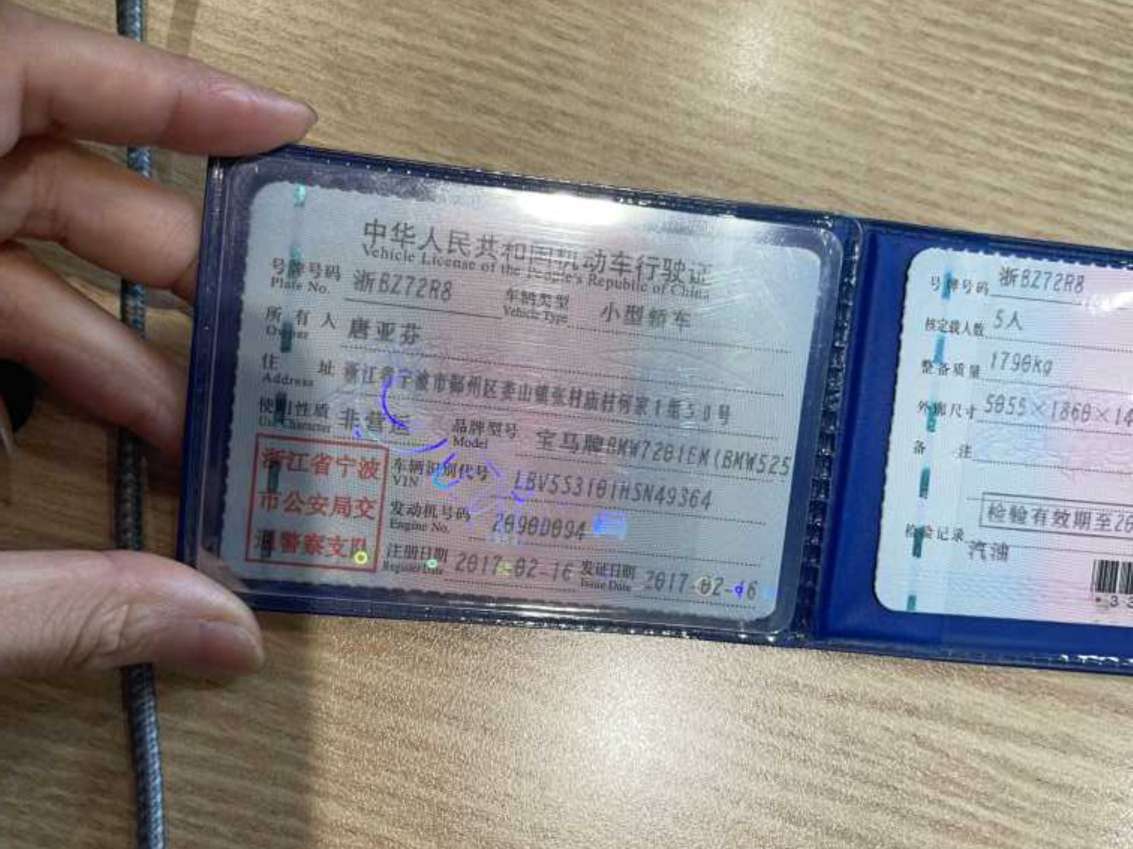 中华人民共和国机动车行驶证
Vehicle License of the People's Republic of China
号牌号码 浙BZ72R8 车辆类型 小型轿车
Plate No. Vehicle Type
所有人 唐亚芬
Owner
住址 浙江省宁波市鄞州区姜山镇张村庙村何家1组50号
Address
使用性质 非营运 品牌型号 宝马牌BMW7201EM(BMW525
Use Character Model
浙江省宁波
市公安局交
通警察支队
车辆识别代号 LBV5S3101HSN49364
VIN
发动机号码 2090D094
Engine No.
注册日期 2017-02-16 发证日期 2017-02-16
Register Date Issue Date
号牌号码 浙BZ72R8
核定载人数 5人
整备质量 1790kg
外廓尺寸 5055×1860×14
备注
检验有效期至20
检验记录
汽油